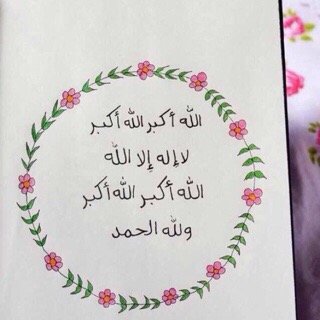 الله أكبر الله أكبر
لا إله إلا الله
الله أكبر الله أكبر
ولله الحمد